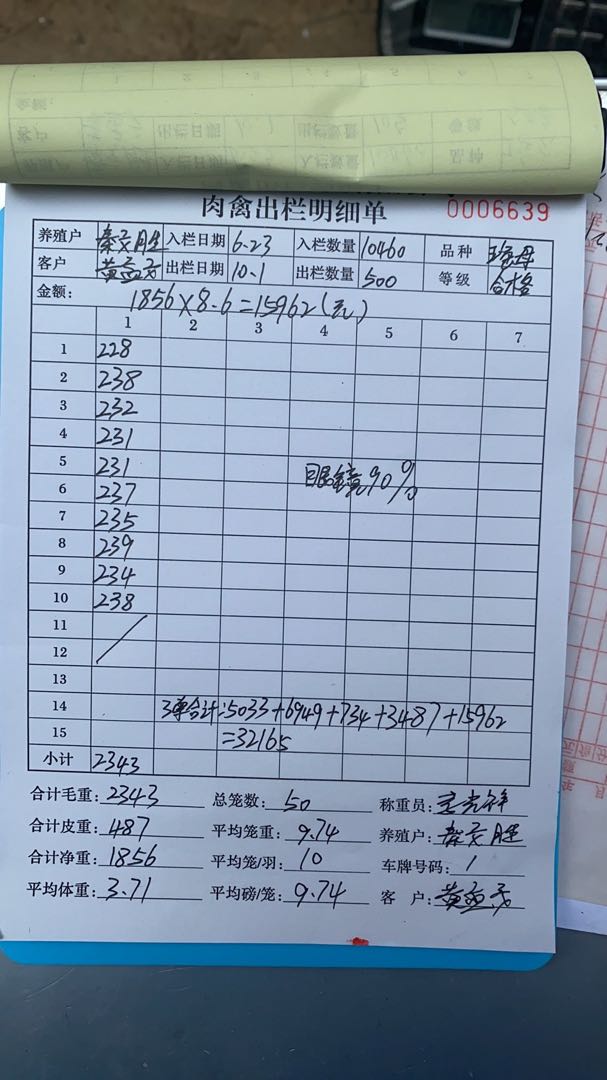 肉禽出栏明细单 0006639
养殖户 秦交胜 入栏日期 6.23 入栏数量 10460 品种
客户 黄孟矛 出栏日期 10.1 出栏数量 500 等级 合格
金额: 1856×8.6=15962(元)
1 2 3 4 5 6 7
1 228
2 238
3 232
4 231
5 231
眼镜90%
6 237
7 235
8 239
9 234
10 238
11
12
13
14 3单合计:5033+6949+734+3487+15962
15 =32165
小计 2343
合计毛重: 2343 总笼数: 50 称重员:
合计皮重: 487 平均笼重: 9.74 养殖户: 秦交胜
合计净重: 1856 平均笼/羽: 10 车牌号码: 1
平均体重: 3.71 平均磅/笼: 9.74 客 户: 黄孟矛